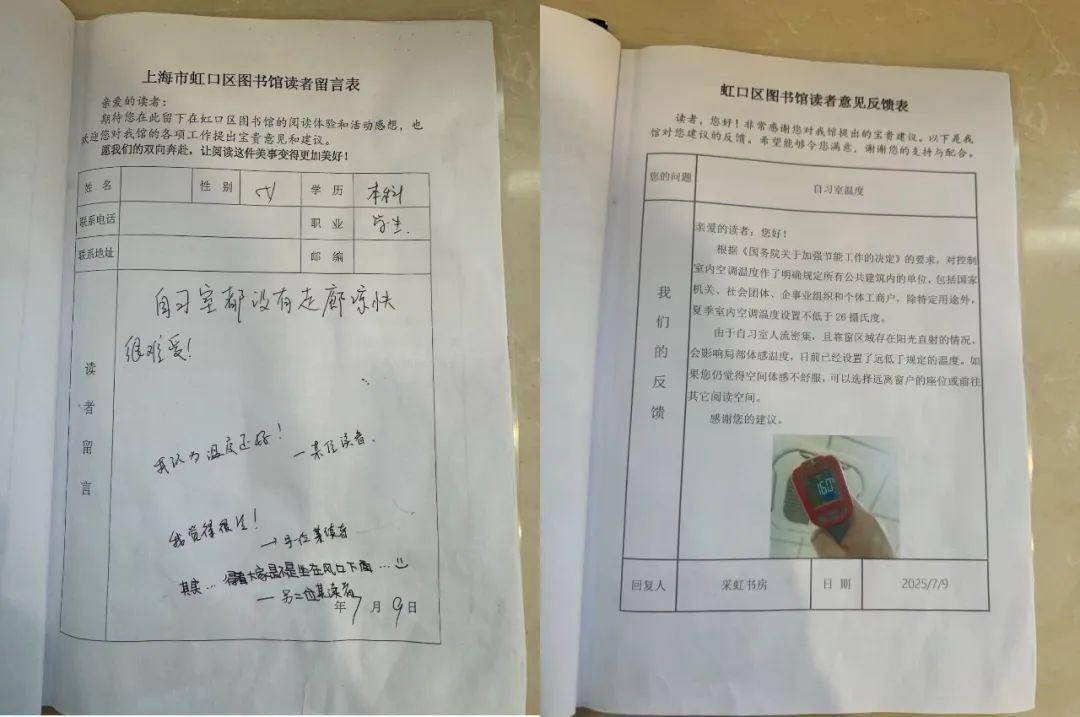 上海市虹口区图书馆读者留言表
亲爱的读者：
期待您在此留下在虹口区图书馆的阅读体验和活动感想，也
欢迎您对我馆的各项工作提出宝贵意见和建议。
愿我们的双向奔赴，让阅读这件美事变得更加美好！
姓 名 性 别 女 学 历 本科
联系电话 职 业 学生
联系地址 邮 编
读者留言
自习室都没有走廊凉快
很难受！
我认为温度还好！
—某位读者.
我觉得很冷！
→另一位某读者
其实… 得看大家是不是坐在风口下面…
— 另二位某读者
年7月9日
虹口区图书馆读者意见反馈表
读者，您好！非常感谢您对我馆提出的宝贵建议。以下是我
馆对您建议的反馈。希望能够令您满意，谢谢您的支持与配合。
您的问题 自习室温度
我们的反馈
亲爱的读者：您好！
根据《国务院关于加强节能工作的决定》的要求，对控制
室内空调温度作了明确规定所有公共建筑内的单位，包括国家
机关、社会团体、企事业组织和个体工商户，除特定用途外，
夏季室内空调温度设置不低于 26 摄氏度。
由于自习室人流密集，且靠窗区域存在阳光直射的情况，
会影响局部体感温度，目前已经设置了远低于规定的温度。如
果您仍觉得空间体感不舒服，可以选择远离窗户的座位或前往
其它阅读空间。
感谢您的建议。
160
回复人 采虹书房 日 期 2025/7/9